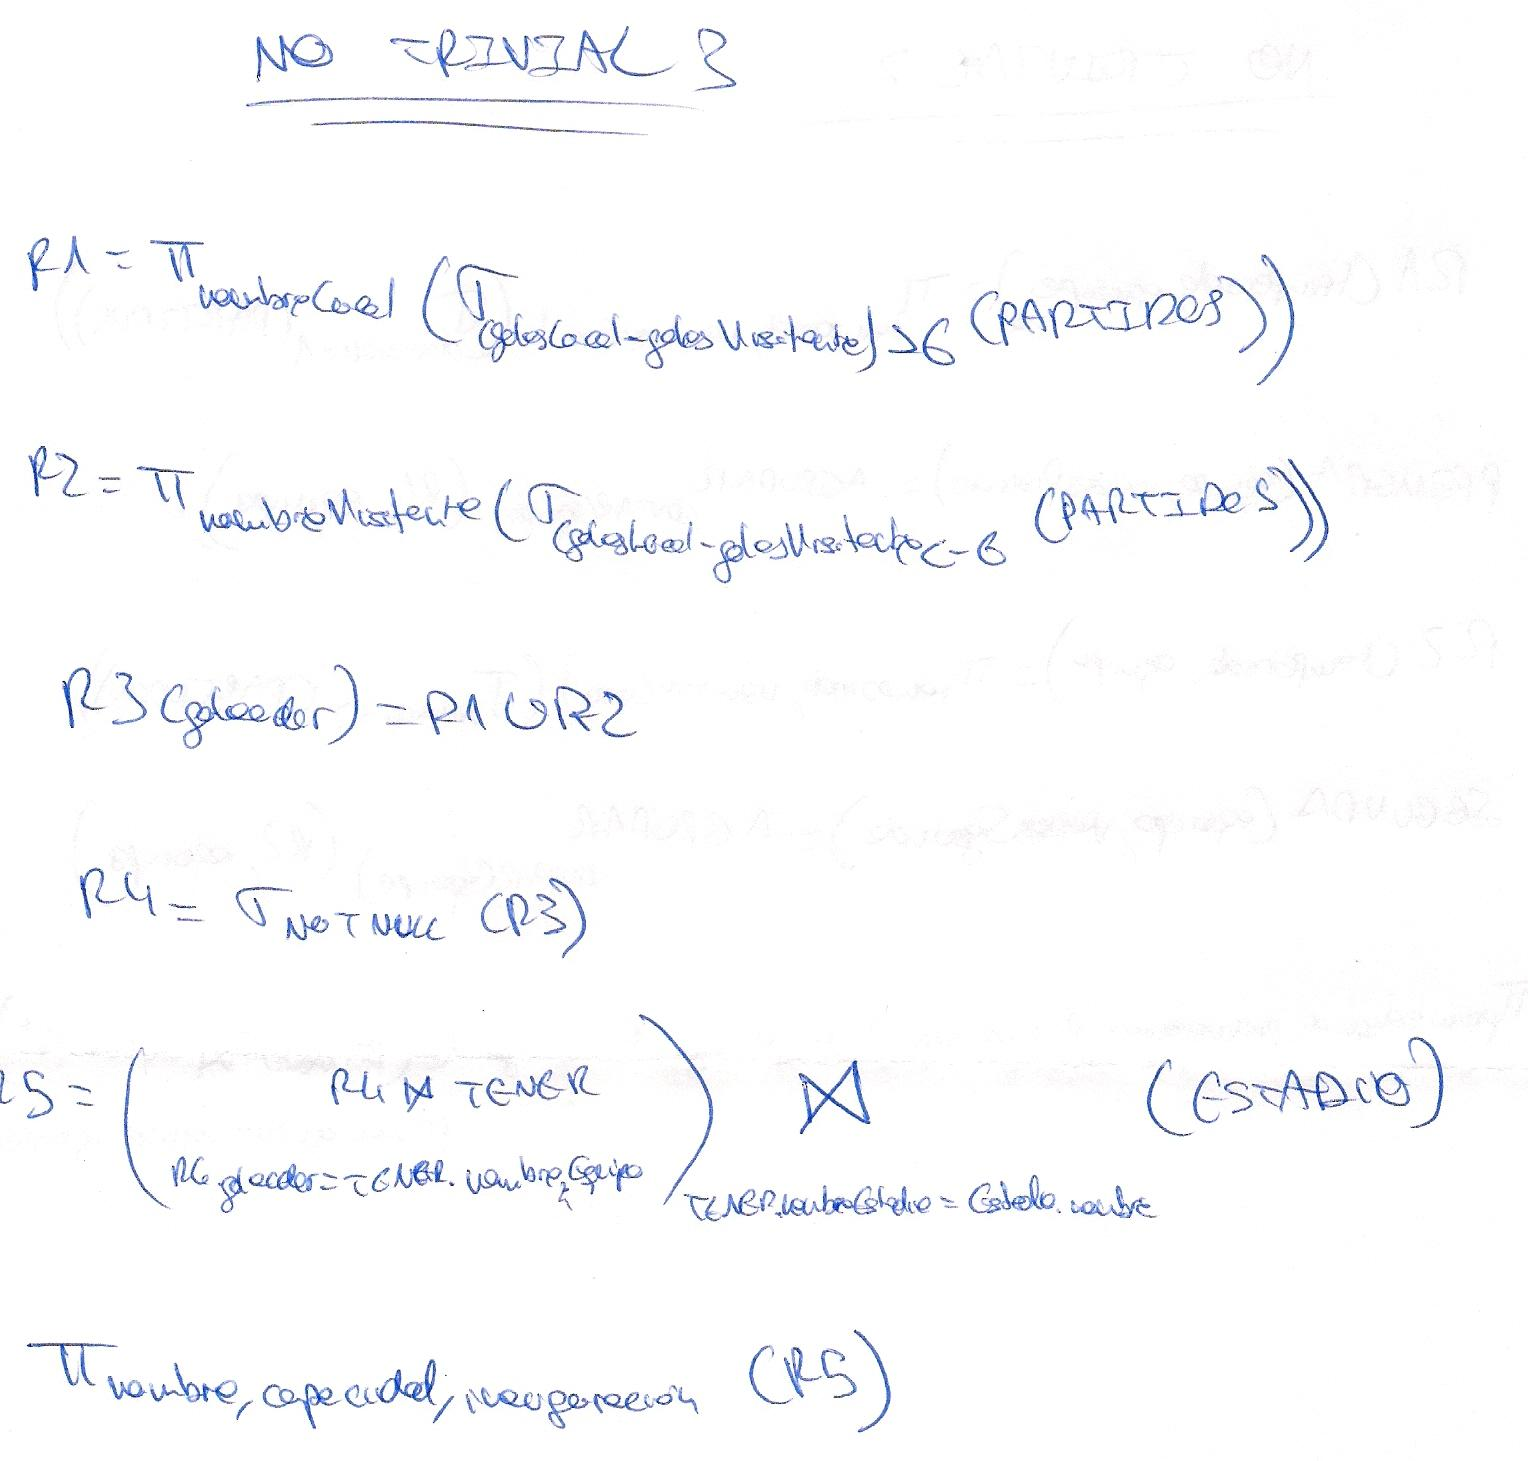 NO TRIVIAL 3
R1 = π nombreLocal (σ (golesLocal-golesVisitante) >6 (PARTIDOS))
R2 = π nombreVisitante (σ (golesLocal-golesVisitante <-6 (PARTIDOS))
R3 (goleador) = R1 ∪ R2
R4 = σ NOT NULL (R3)
R5 = ( R4 ⋈ TENER ) ⋈ (ESTADIO)
R4 goleador = TENER.nombreEquipo TENER.nombreEstadio = Estadio.nombre
π nombre, capacidad, inauguración (R5)